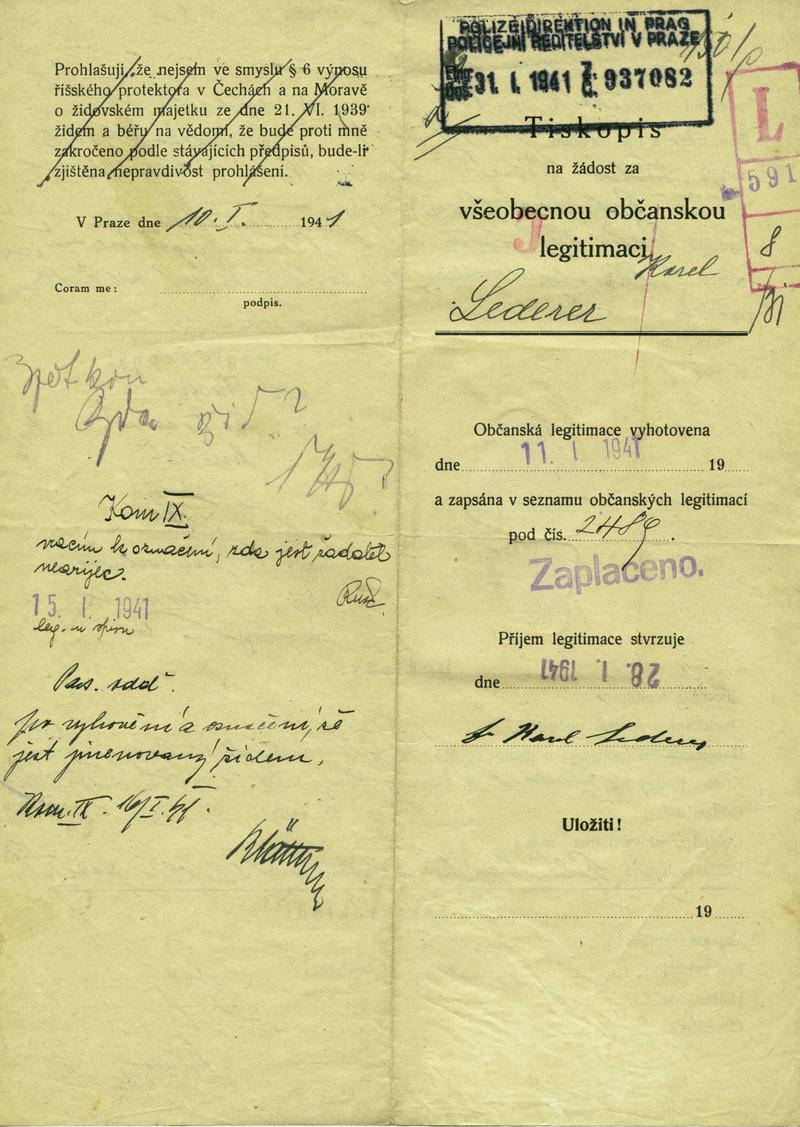 Prohlašuji, že nejsem ve smyslu § 6 výnosu
říšského protektora v Čechách a na Moravě
o židovském majetku ze dne 21. VI. 1939
židem a béřu na vědomí, že bude proti mně
zakročeno podle stávajících předpisů, bude-li
zjištěna nepravdivost prohlášení.
V Praze dne 10. I. 1941
Coram me:
podpis.
zda žid?
Kom IX.
vracím k označení, zda jest žadatel
nearijec.
15. I. 1941
Pas. odd.
po vyhovění a označení, že
jest jmenovaný židem,
Kom. IX. 16/I. 41.
POLIZEIDIREKTION IN PRAG
POLICEJNÍ ŘEDITELSTVÍ V PRAZE
31. I. 1941 937082
L
591
8
Tiskopis
na žádost za
všeobecnou občanskou
legitimaci
J
Karel
Lederer
Občanská legitimace vyhotovena
dne 11. I. 1941 19
a zapsána v seznamu občanských legitimací
pod čís. 2489.
Zaplaceno.
Příjem legitimace stvrzuje
dne 28. I. 1941
Karel Lederer
Uložiti!
19